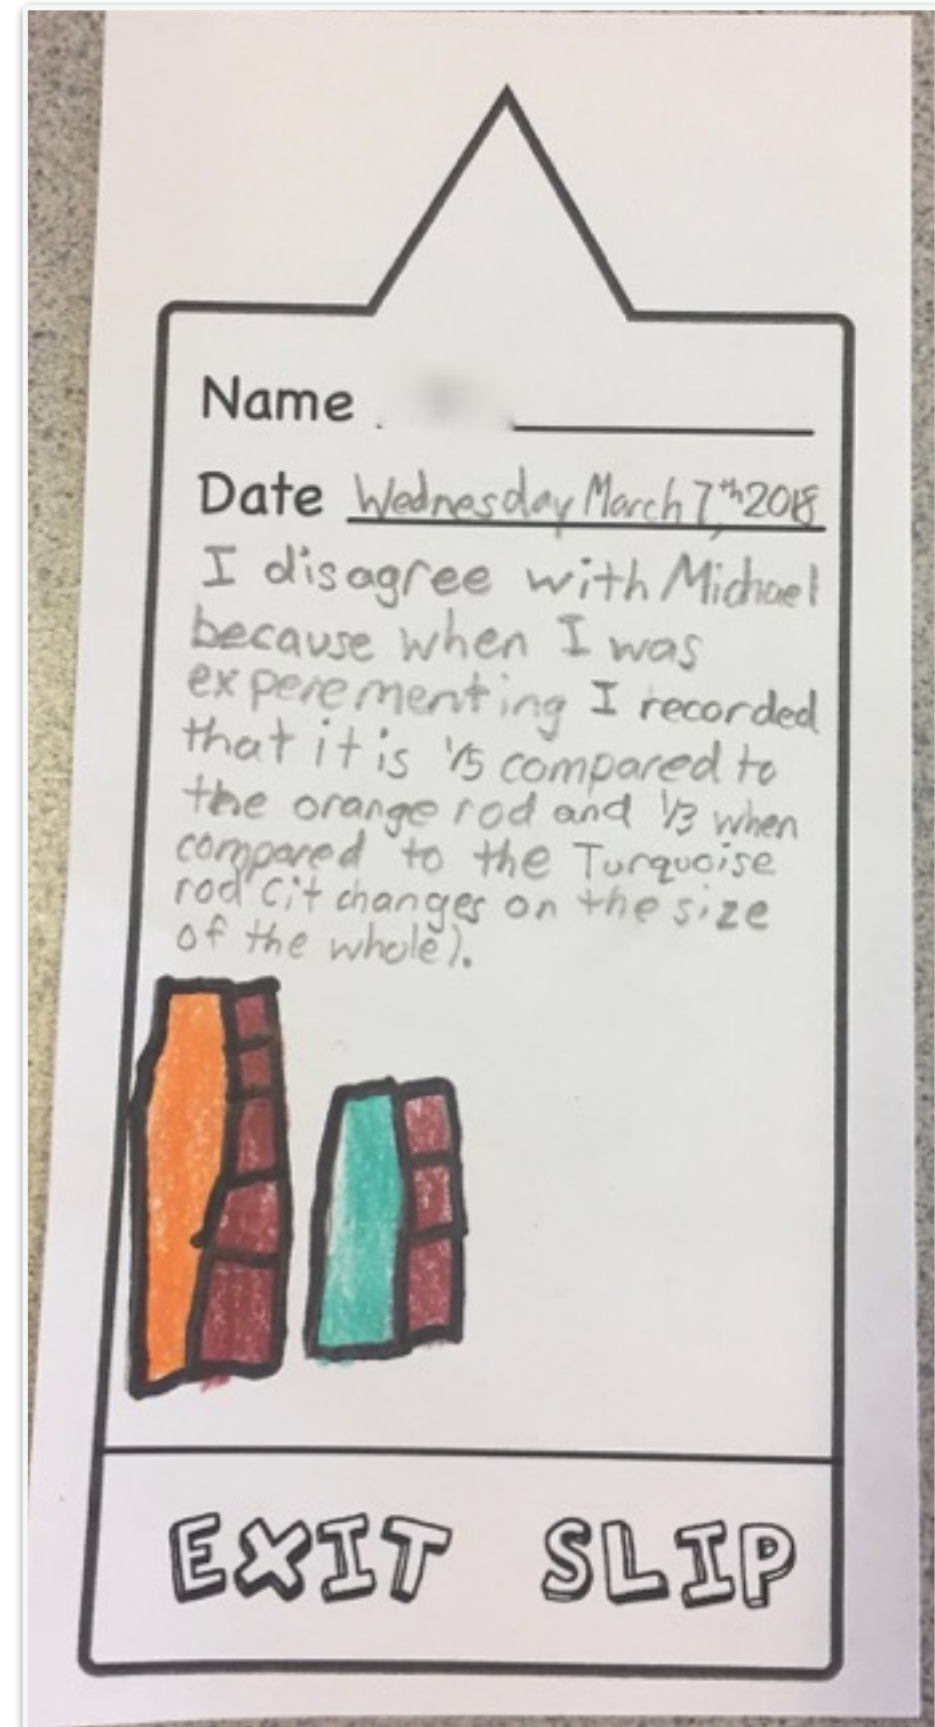 Name
Date Wednesday March 7,th 2018
I disagree with Michael
because when I was
experementing I recorded
that it is 1/5 compared to
the orange rod and 1/3 when
compared to the Turquoise
rod (it changes on the size
of the whole).
EXIT SLIP